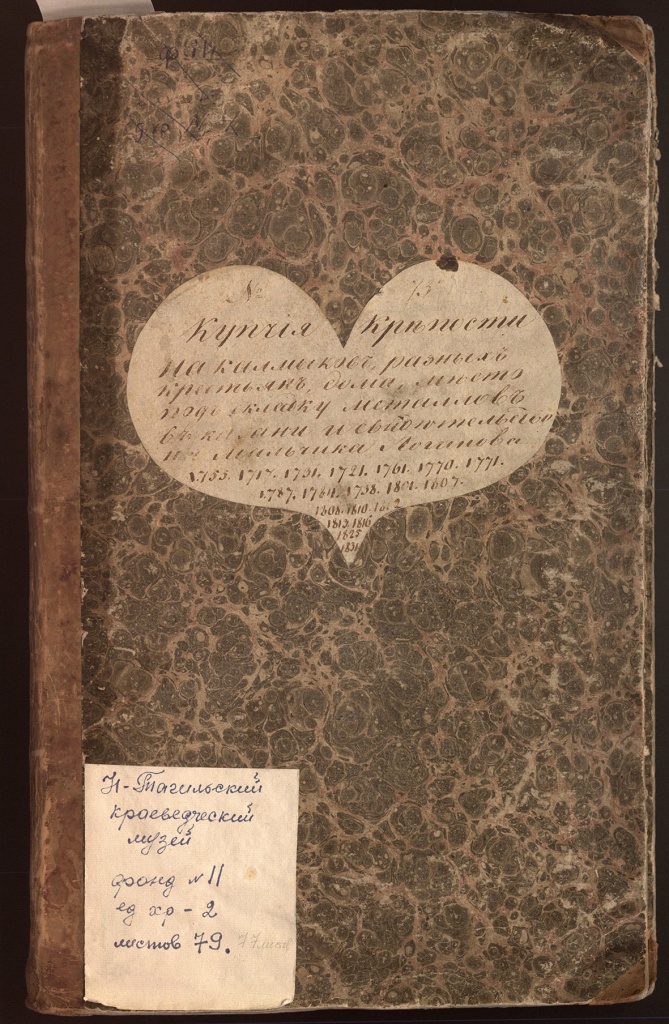 ф 11
№
Купчія Крѣпости
на калмыковъ, разныхъ
крестьянъ, дома, мѣстъ
подъ складку металловъ
въ казани и свидѣтельство
на мальчика Логанова
1755. 1717. 1731. 1721. 1761. 1770. 1771.
1787. 1784. 1738. 1801. 1807.
1808. 1810.
1813. 1816.
1825
1831
Н-Тагильский
краеведческий
музей
фонд № 11
ед хр - 2
листов 79.